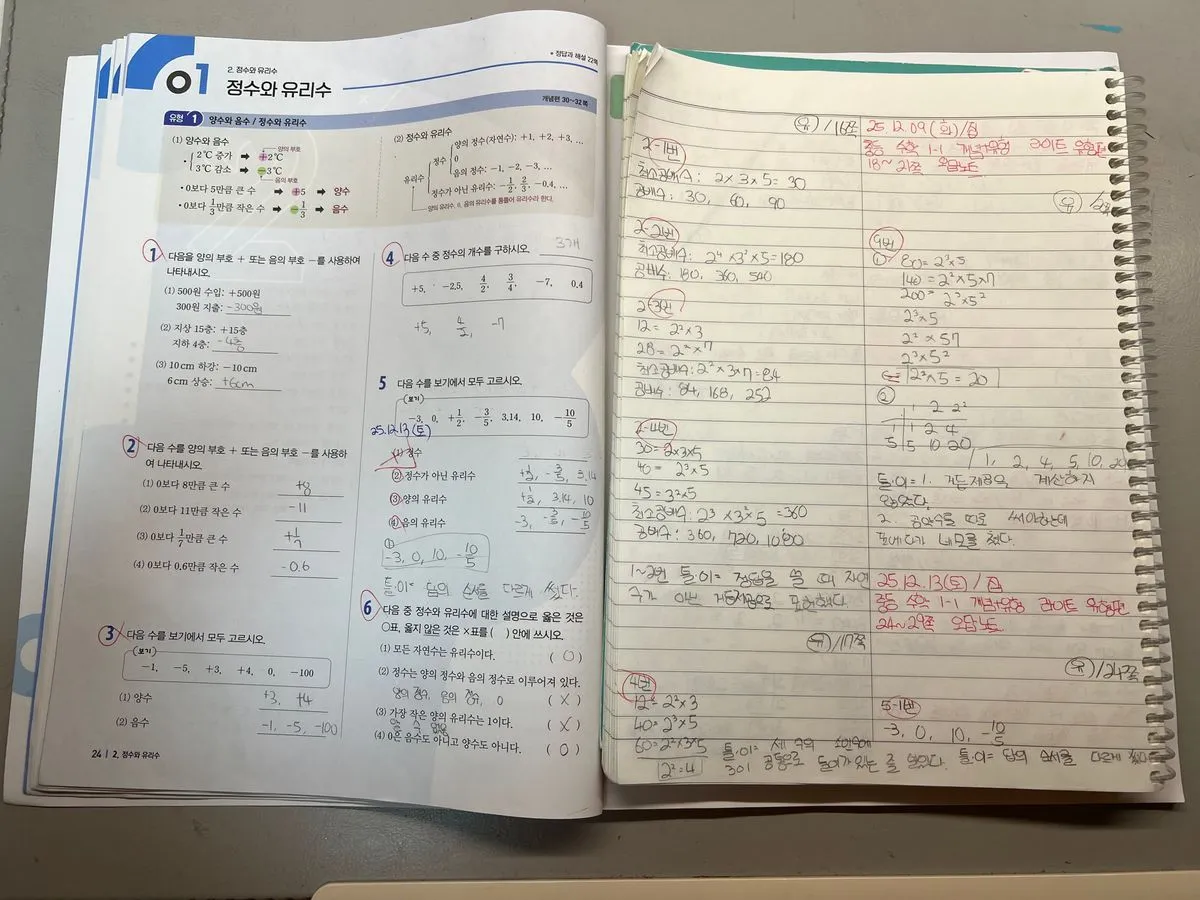 *정답과 해설 22쪽
2. 정수와 유리수
01 정수와 유리수
개념편 30~32쪽
유형 1 양수와 음수 / 정수와 유리수
(1) 양수와 음수
양의 부호
2℃ 증가 ➡ +2℃
3℃ 감소 ➡ -3℃
음의 부호
•0보다 5만큼 큰 수 ➡ +5 ➡ 양수
•0보다 1/3만큼 작은 수 ➡ -1/3 ➡ 음수
(2) 정수와 유리수
유리수
정수
양의 정수(자연수): +1, +2, +3, …
0
음의 정수: -1, -2, -3, …
정수가 아닌 유리수: -1/2, 2/3, -0.4, …
양의 유리수, 0, 음의 유리수를 통틀어 유리수라 한다.
1 다음을 양의 부호 + 또는 음의 부호 -를 사용하여
나타내시오.
(1) 500원 수입: +500원
300원 지출: -300원
(2) 지상 15층: +15층
지하 4층: -4층
(3) 10cm 하강: -10cm
6cm 상승: +6cm
2 다음 수를 양의 부호 + 또는 음의 부호 -를 사용하
여 나타내시오.
(1) 0보다 8만큼 큰 수 +8
(2) 0보다 11만큼 작은 수 -11
(3) 0보다 1/7만큼 큰 수 +1/7
(4) 0보다 0.6만큼 작은 수 -0.6
3 다음 수를 보기에서 모두 고르시오.
보기
-1, -5, +3, +4, 0, -100
(1) 양수 +3, +4
(2) 음수 -1, -5, -100
24 | 2. 정수와 유리수
4 다음 수 중 정수의 개수를 구하시오. 3개
+5, -2.5, 4/2, 3/4, -7, 0.4
+5, 4/2, -7
5 다음 수를 보기에서 모두 고르시오.
보기
-3, 0, +1/2, -3/5, 3.14, 10, -10/5
25.12.13(토)
(1) 정수
(2) 정수가 아닌 유리수 +1/2, -3/5, 3.14
(3) 양의 유리수 +1/2, 3.14, 10
(4) 음의 유리수 -3, -3/5, -10/5
①
-3, 0, 10, -10/5
틀·이= 답의 순서를 다르게 썼다.
6 다음 중 정수와 유리수에 대한 설명으로 옳은 것은
○표, 옳지 않은 것은 ×표를 ( ) 안에 쓰시오.
(1) 모든 자연수는 유리수이다. (○)
(2) 정수는 양의 정수와 음의 정수로 이루어져 있다.
양의 정수, 음의 정수, 0 (X)
(3) 가장 작은 양의 유리수는 1이다. (X)
알 수 없음
(4) 0은 음수도 아니고 양수도 아니다. (○)
유/16쪽
2-1번
최소공배수: 2×3×5=30
공배수: 30, 60, 90
2-2번
최소공배수: 2⁴×3²×5=180
공배수: 180, 360, 540
2-3번
12=2²×3
28=2²×7
최소공배수: 2²×3×7=84
공배수: 84, 168, 252
2-4번
30=2×3×5
40=2³×5
45=3²×5
최소공배수: 2³×3²×5=360
공배수: 360, 720, 1080
1~2번 틀·이= 정답을 쓸 때 자연
수가 아닌 거듭제곱으로 표현했다.
유/17쪽
4번
12=2²×3
40=2³×5
60=2²×3×5
2²=4
틀·이= 세 수의 소인수에
3이 공통으로 들어가 있는 줄 알았다.
25.12.09(화)/집
중등 수학 1-1 개념+유형 라이트 유형편
18~21쪽 오답노트
9번
① 80=2³×5
140=2²×5×7
200=2³×5²
2³×5
2²×57
2³×5²
2²×5=20
②
1 2 2²
1 1 2 4
5 5 10 20
1, 2, 4, 5, 10, 20
틀·이= 1. 거듭제곱을 계산하지
않았다.
2. 공약수를 따로 써야하는데
표에다가 네모를 쳤다.
25.12.13(토)/집
중등 수학 1-1 개념+유형 라이트 유형편
24~29쪽 오답노트
유/24쪽
5-1번
-3, 0, 10, -10/5
틀·이= 답의 순서를 다르게 썼다